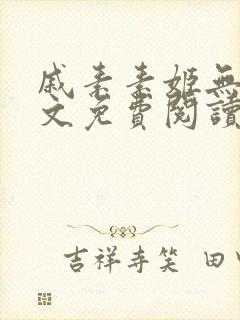 戚素素姬無
文免費閱讀
吉祥寺笑 田